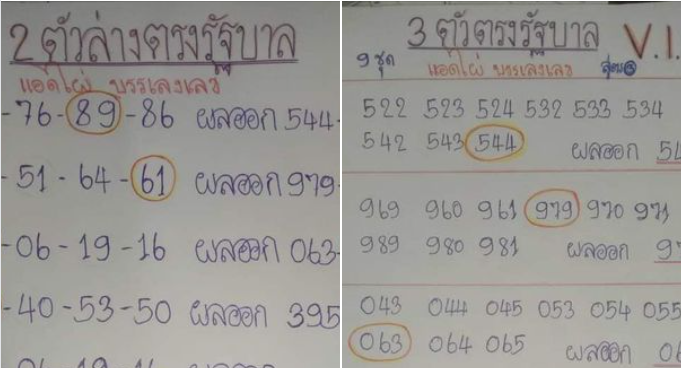 2 ตัวล่างตรงรัฐบาล
แอดไผ่ บรรเลงเลข
-76-89-86 ผลออก 544-
-51-64-61 ผลออก 979-
-06-19-16 ผลออก 063-
-40-53-50 ผลออก 395
3 ตัวตรงรัฐบาล V.I.
9 ชุด แอดไผ่ บรรเลงเลข
522 523 524 532 533 534
542 543 544 ผลออก
969 960 961 979 970 971
989 980 981 ผลออก
043 044 045 053 054 055
063 064 065 ผลออก